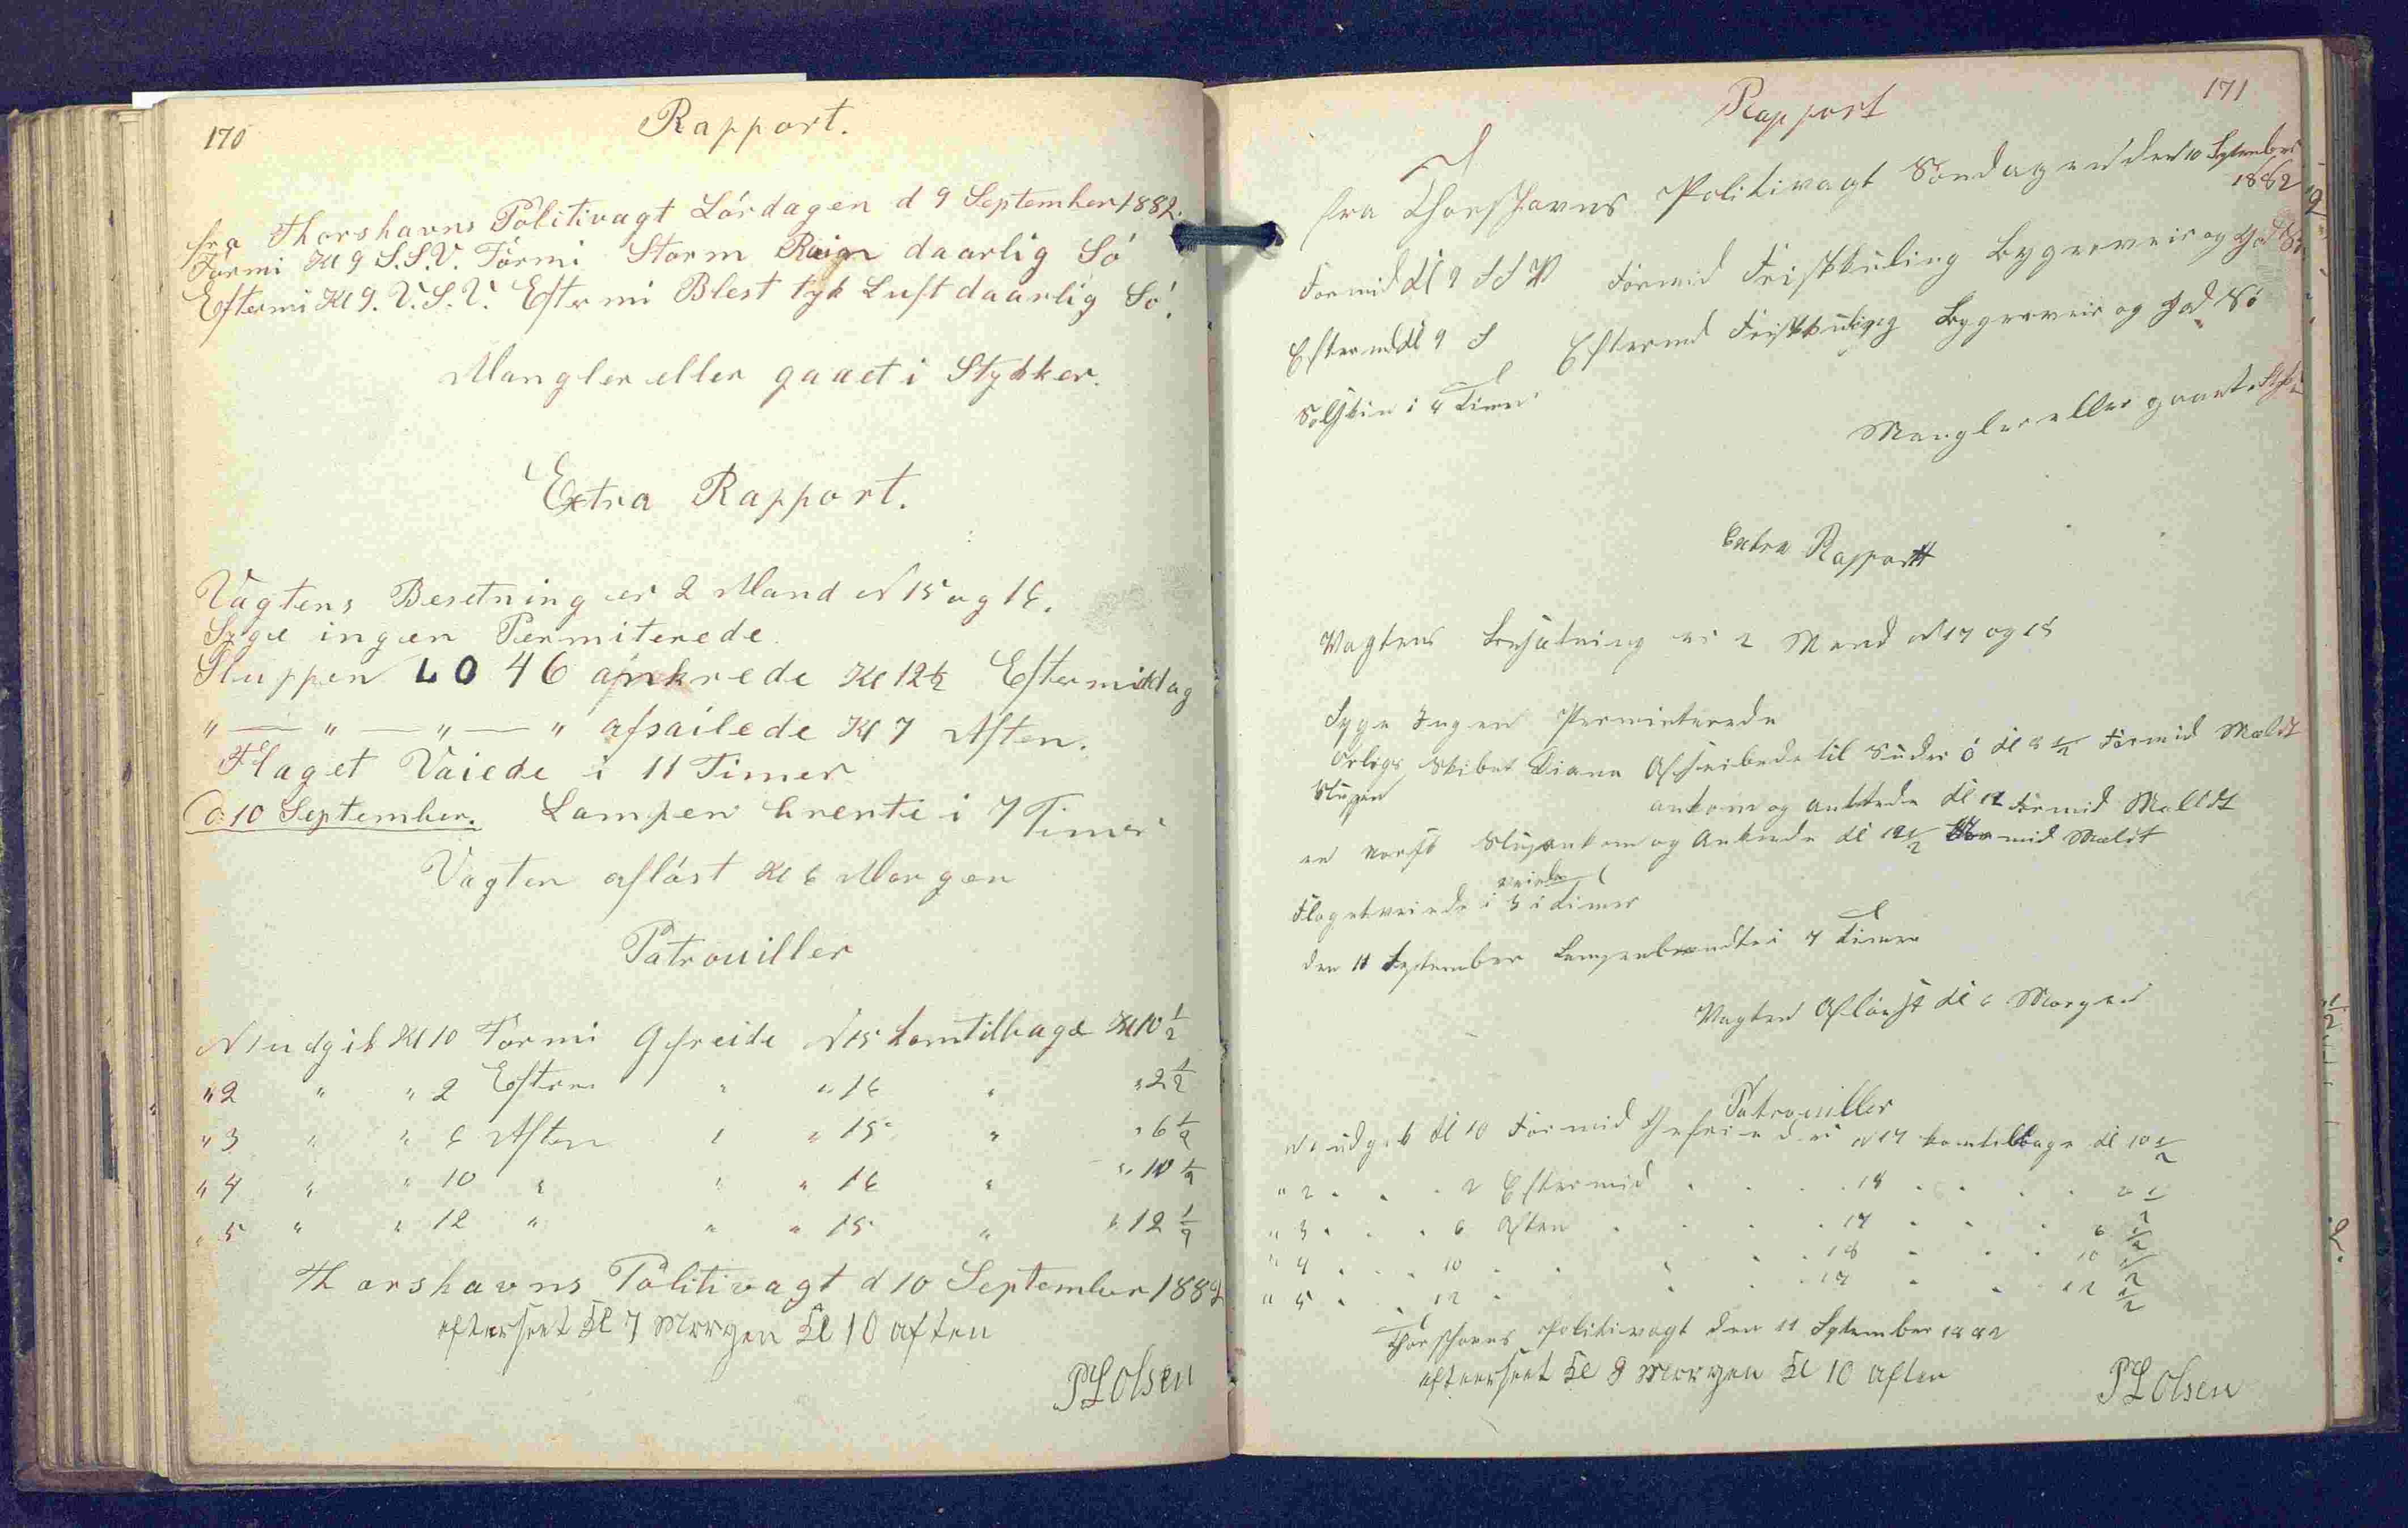 170
Rapport.
fra Thorshavns Politivagt Lördagen d 9 September 1882.
Formi Kl 9 S.S.V. Formi Storm Raign daarlig Sö
Eftermi Kl 9. V.S.V. Eftermi Blest tyk Luft daarlig Sö.
Mangler eller gaaet i Stykker.
Extra Rapport.
Vagtens Besetning er 2 Mand N 15 og 16.
Syge ingen Permiterede
Sluppen LO 46 ankrede Kl 12½ Eftermiddag
" — " — " — " afsailede Kl 7 Aften.
Flaget Vaiede i 11 Timer
d: 10 September. Lampen brente i 7 Timer
Vagten aflöst Kl 6 Morgen
Patrouiller
N 1 udgik Kl 10 Formi Gefreide N 15 kom tilbage Kl 10 ½
" 2 " " 2 Efterm " " 16 " " 2 ½
" 3 " " 6 Aften " " 15 " " 6 ½
" 4 " " 10 " " " 16 " " 10 ½
" 5 " " 12 " " " 15 " " 12 ½
Thorshavns Politivagt d 10 September 1882
efterseet Kl 7 Morgen Kl 10 aften
PLOlsen
171
Rapport
fra Thorshavns Politivagt Söndagen den 10 September
1882
Formid Kl 9 S S V Formid Friskkuling Bygeveir og god Sö
Eftermid Kl 9 S Eftermid Friskkuling Bygeveir og god Sö
Solskin i 4 Timer
Mangler eller gaaet i
Extra Rapport
Vagtens Besætning er 2 Mand N 17 og 18
Syge Ingen Permiterede
Orlogs Skibet Diana til Suderö Kl 8 ½ Formid Meldt
Slupen ankom og ankrede Kl 12 Formid Meldt
en Norsk Slup ankom og Ankrede Kl 12 ½ mid Meldt
veiede
Flaget veiede i 3 i Timer
den 11 September Lampen brendte i 7 Timer
Vagten Aflöest Kl 6 Morgen
Patrouiller
N 1 udgik Kl 10 Formid Gefreider N 17 kom tilbage Kl 10 ½
" 2 " " 2 Eftermid " " 18 " " 2 ½
" 3 " " 6 Aften " " 17 " " 6 ½
" 4 " " 10 " " " 18 " " 10 ½
" 5 " " 12 " " " 17 " " 12 ½
Thorshavns Politivagt den 11 September 1882
efterseet Kl 8 Morgen Kl 10 Aften
PLOlsen